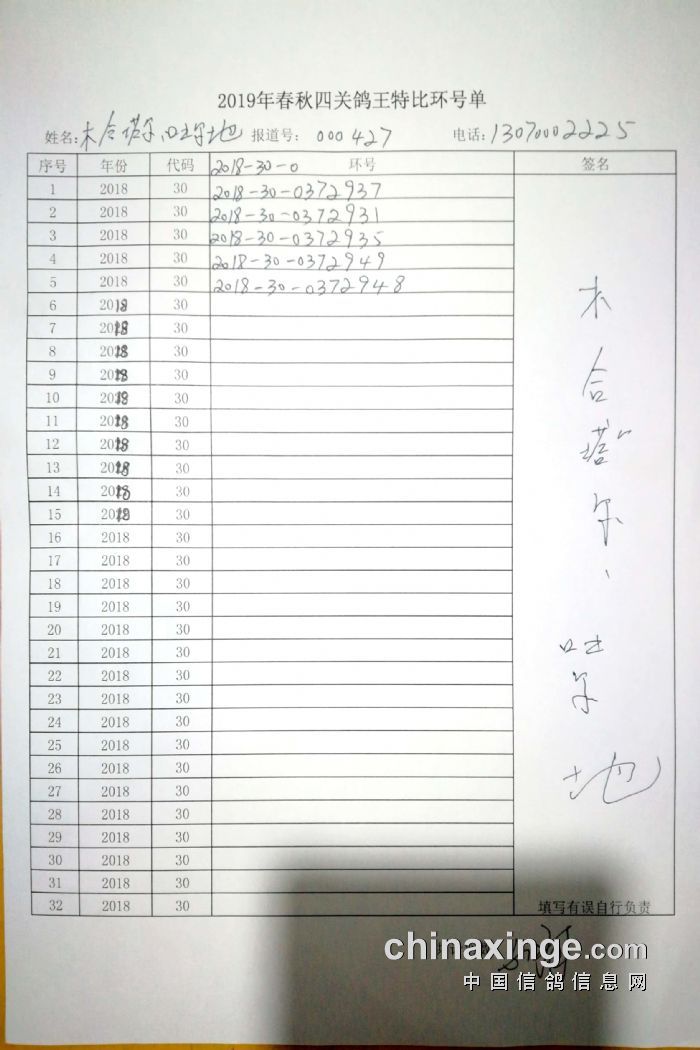 2019年春秋四关鸽王特比环号单
姓名: 木合塔尔、吐尔地 报道号: 000427 电话: 13070002225
序号 年份 代码 2018-30-0 环号 签名
1 2018 30 2018-30-0372937
2 2018 30 2018-30-0372931
3 2018 30 2018-30-0372935
4 2018 30 2018-30-0372949
5 2018 30 2018-30-0372948
6 2018 30
7 2018 30
8 2018 30
9 2018 30
10 2018 30
11 2018 30
12 2018 30
13 2018 30
14 2018 30
15 2018 30
16 2018 30
17 2018 30
18 2018 30
19 2018 30
20 2018 30
21 2018 30
22 2018 30
23 2018 30
24 2018 30
25 2018 30
26 2018 30
27 2018 30
28 2018 30
29 2018 30
30 2018 30
31 2018 30
32 2018 30
木合塔尔、吐尔地
填写有误自行负责
chinaxinge.com
中国信鸽信息网